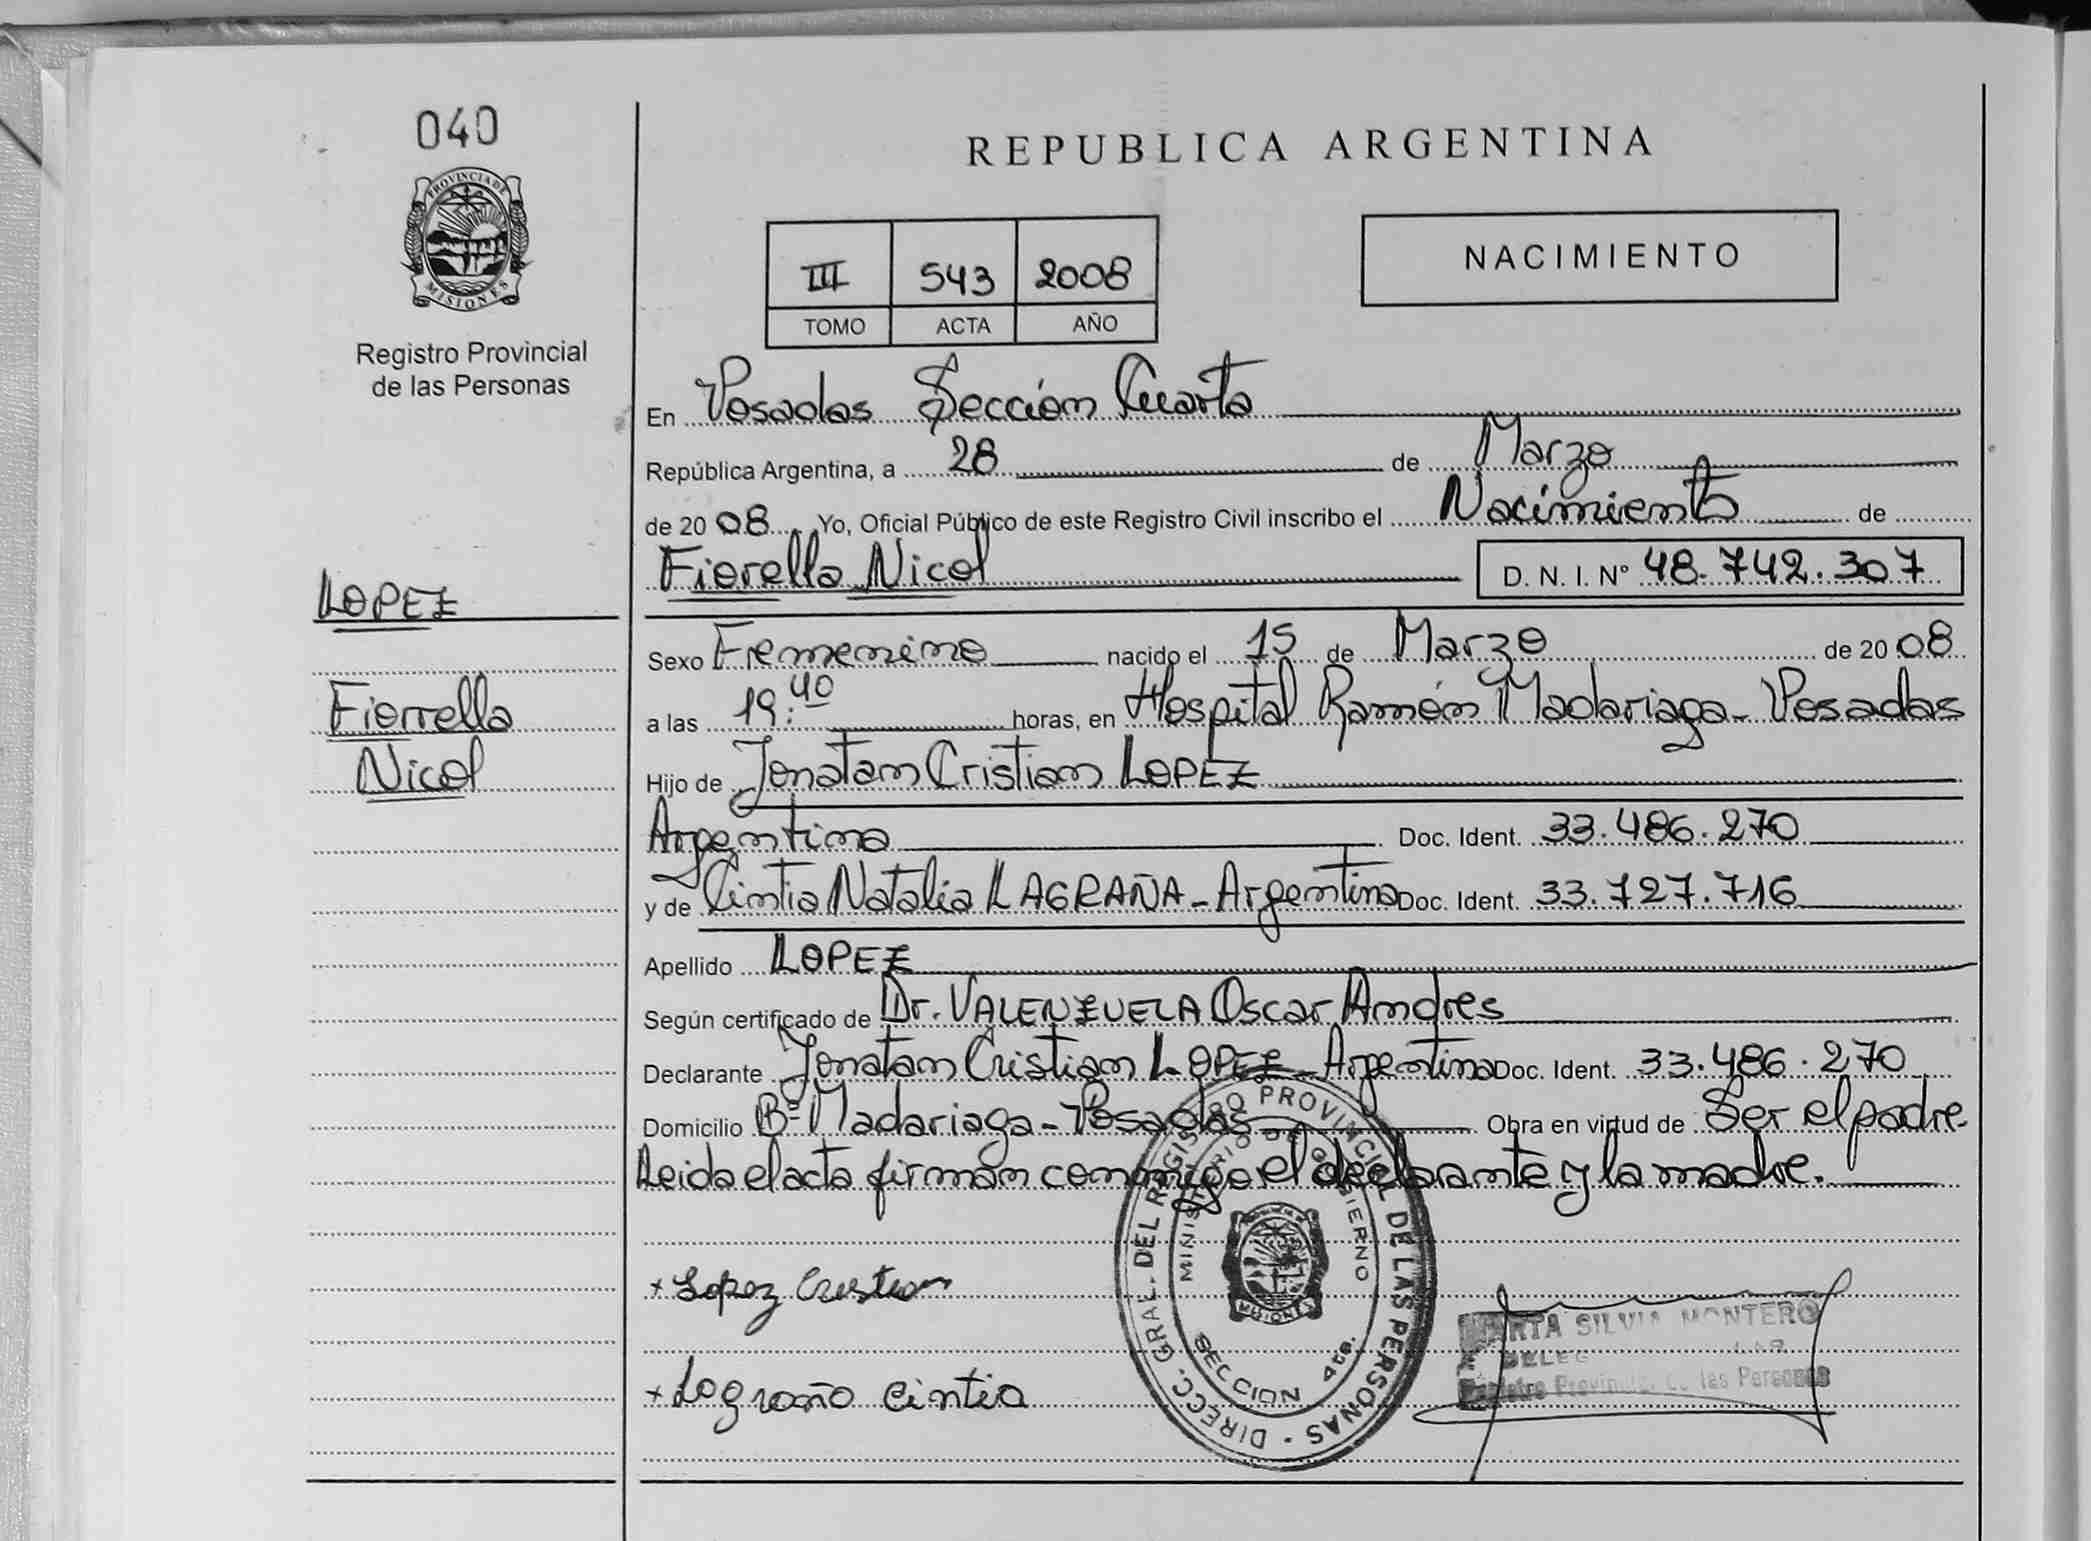 040
PROVINCIA DE
MISIONES
Registro Provincial
de las Personas
REPUBLICA ARGENTINA
III 543 2008
TOMO ACTA AÑO
NACIMIENTO
En Posadas Sección Cuarta
República Argentina, a 28 de Marzo
de 2008 Yo, Oficial Público de este Registro Civil inscribo el Nacimiento de
Fiorella Nicol D. N. I. Nº 48.742.307
LOPEZ
Fiorrella
Nicol
Sexo Femenino nacido el 15 de Marzo de 2008
a las 19:40 horas, en Hospital Ramón Madariaga - Posadas
Hijo de Jonatan Cristian LOPEZ
Argentino Doc. Ident. 33.486.270
y de Cintia Natalia LAGRAÑA - Argentina Doc. Ident. 33.727.716
Apellido LOPEZ
Según certificado de Dr. VALENZUELA Oscar Andres
Declarante Jonatan Cristian LOPEZ - Argentino Doc. Ident. 33.486.270
Domicilio Bº Madariaga - Posadas Obra en virtud de Ser el padre
Leida el acta firman conmigo el declarante y la madre.
+ Lopez Cristian
+ Lograño Cintia
DIRECC. GRAL. DEL REGISTRO PROVINCIAL DE LAS PERSONAS
MINISTERIO DE GOBIERNO
MISIONES
SECCION 4ta.
SILVIA MONTERO
Registro Provincial de las Personas